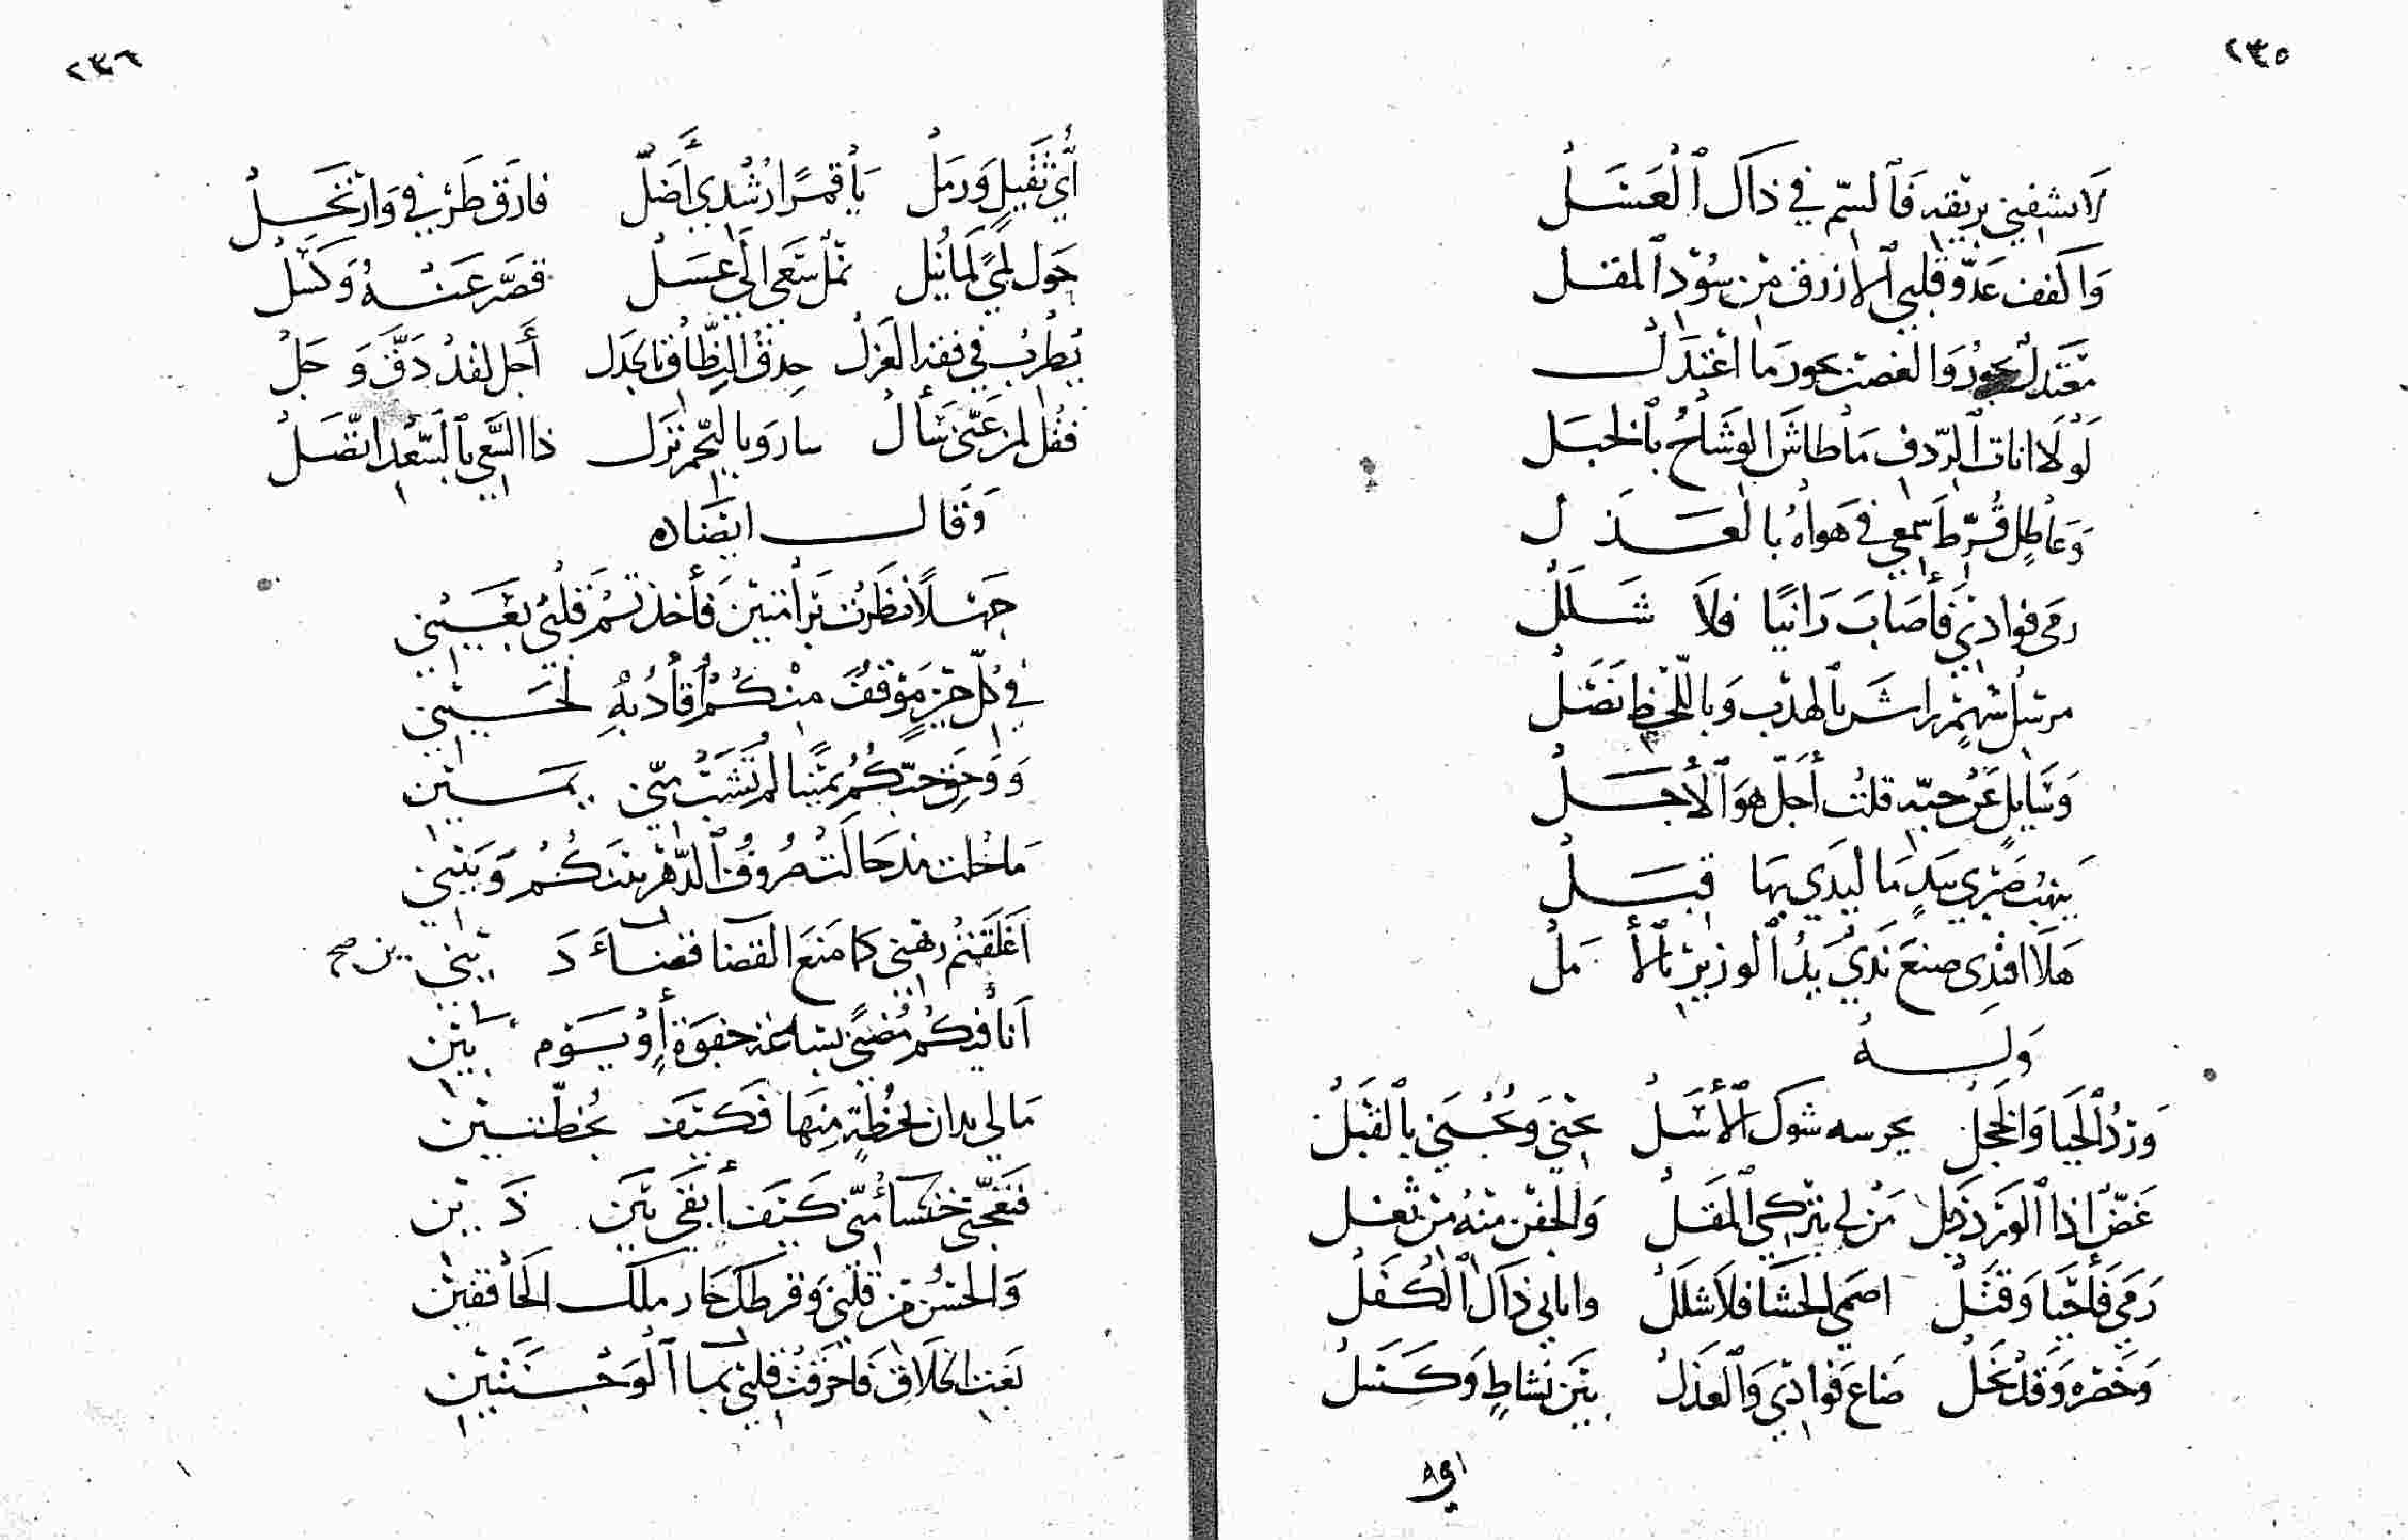 ٢٣٥
لَا تشفني بريقه فَالسّم في ذَاكَ الْعَسَلْ
وَاكفف عَدّو قلبي الازرق مِن سُوْد المقل
مقتدلٌ يجورُ وَالغصن يجور مَا اعْتَدَلْ
لَوْلَا اناة الرّدف مَا طاشَ الوشَاحُ بالخبَل
وَعَاطِل قُرّطَ سَمعي في هَواهُ بالعَذَل
رمى فوادي فَأصَابَ رَانيًا فلَا شَلَلْ
مرسلُ سَهمٍ راشَ بالهدْب وَباللّحْظ نَصَلْ
وَسَايلٍ عَنْ حبّه قلتُ أجَلّ هوَ الأجَلْ
يَنهبُ صَبْري بيَدٍ مَا ليَدي بهَا قِبَلْ
هَلا اقتدى صنعَ نَدَيْ يَدُ الوزيرْ بالأمَلْ
وَلهُ
وَرْدُ الحَيا وَالخَجلْ يحرسه شوك الأسَلْ يُجْنَى وَيُجْتَنى بالقبَلْ
غَضّ اذا الوَرْد ذبل مَنْ لي بتركي المقلْ وَالجفن منهُ مِنْ ثعَل
رَمَى فَأحْيَا وَقتَلْ اصمى الحشَا فلَا شَللْ وانا بي ذَاكَ الكَفَلْ
وَخَصْره وَقدْ نَحَلْ ضاعَ فوادي وَالعَذَلْ بين نشاطٍ وَكَسَلْ
اي
٢٣٦
أيّ ثَقيلٍ وَرمَلْ يَا قمرًا رُشْدي أَضَلّ فارَق طَرْفي وَارْتَحَلْ
حَول لمىً لما يُنيل نملٌ سَعَى الَى عسَلْ قصّر عَنْهُ وَكسَلْ
يُطْربُ في فقه الغَزلْ حِذقُ النظّاق بالجدَل أَجل لقدْ دَقَّ وَجَلْ
فقُل لمنْ عَنّى سَألْ سار وَبالنّجم نزَل ذا السَّعي بالسّعد اتّصَلْ
وَقَالَ ايضَا
جَهْلًا نظَرْت برَامَتينَ فأخذتمُ قلبي بعَيْنى
في كلّ حَيّ مَوْقفٌ مِنْكُمْ أُقَادُ بهِ لحَيْني
وَوَحَقّ حبّكُمُ يَمينًا لمْ تُشَبْ منّي بمَيْن
مَا خُلت مذ حَالَتْ صُروفُ الدّهْر بينَكُمُ وَبَيْني
اَغْلَقتُمُ رهْنى كما مَنَعَ القضا قضاءَ دَيْني ين صح
اَنا فيكُمُ مُضنًى بسَاعة جفوَة أو يَوْم بَيْن
مَا لي يدان بخُطّةٍ مِنهَا فكَيْفَ بخُطّتَيْن
فتعجّبي خنسآءُ منّي كَيْفَ أبقَى بَيْن ذَيْن
وَالحسْن من قلبي وَقرطك حَاز ملك الخَافقَيْن
لعَبَت اخلَاق فَأحْرَقت قلبي بما آلوَجْنَتَيْن